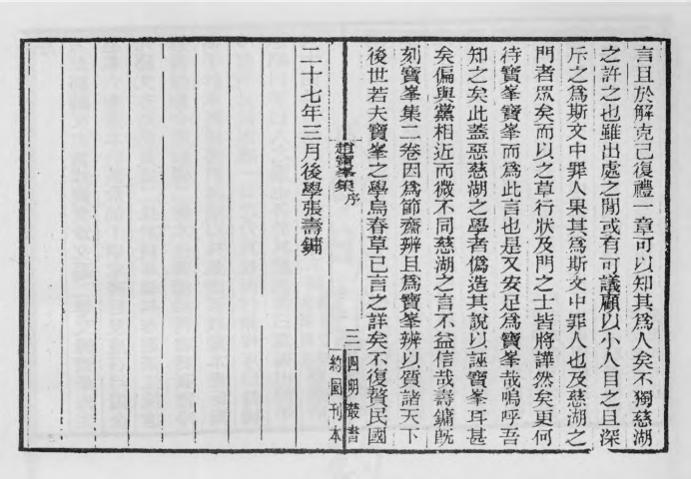 言且於解克己復禮一章可以知其爲人矣不獨慈湖
之許之也雖出處之閒或有可議顧以小人目之且深
斥之爲斯文中罪人果其爲斯文中罪人也及慈湖之
門者眾矣而以之草行狀及門之士皆將譁然矣更何
待寶峯寶峯而爲此言也是又安足爲寶峯哉嗚呼吾
知之矣此蓋惡慈湖之學者僞造其說以誣寶峯耳甚
矣偏與黨相近而微不同慈湖之言不益信哉壽鏞旣
刻寶峯集二卷因爲節齋辨且爲寶峯辨以質諸天下
後世若夫寶峯之學烏春草已言之詳矣不復贅民國
趙寶峯集 序
三
四明叢書
約園刊本
二十七年三月後學張壽鏞